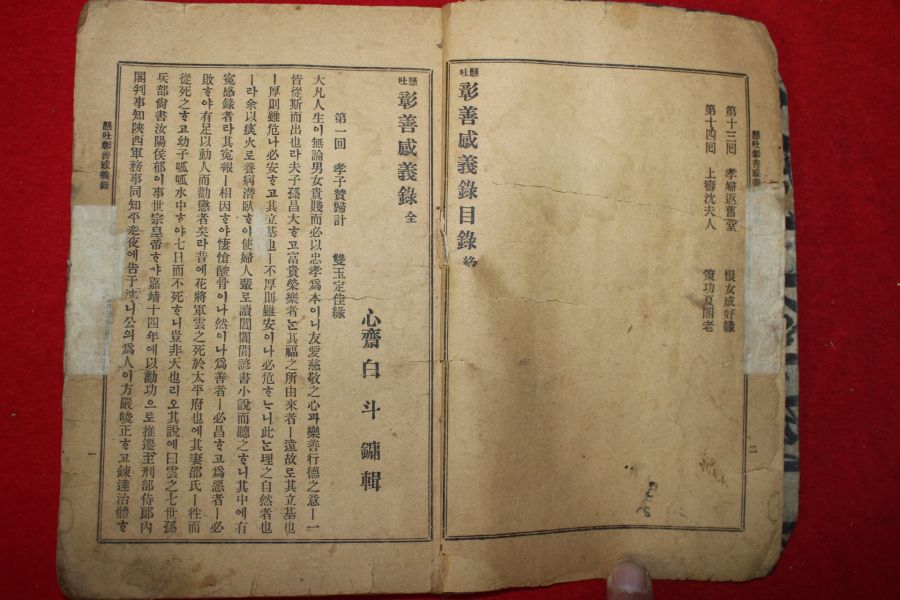 第十三回 孝婦返舊堂 恨女成好緣
第十四回 上壽沈夫人 策功夏閣老
懸吐 彰善感義錄目錄 終
懸吐彰善感義
二
懸吐 彰善感義錄 全
心齋白斗鏞輯
第一回 孝子贊歸計 雙玉定佳緣
大凡人生이無論男女貴賤而必以忠孝爲本이니友愛慈敬之心과樂善行德之意ㅣ一
皆從斯而出也라夫子孫昌大ᄒᆞ고富貴榮樂者ᄂᆞᆫ其福之所由來者ㅣ遠故로其立基也
ㅣ厚則雖危나必安ᄒᆞ고其立基也ㅣ不厚則雖安이나必危ᄒᆞᄂᆞ니此ᄂᆞᆫ理之自然者也
ㅣ라余以痰火로養病潛臥ᄒᆞ야使婦人輩로讀閭閻間諺書小說而聽之ᄒᆞ니其中에有
寃感錄者라其寃報ㅣ相因ᄒᆞ야悽愴酸骨이나然이나爲善者ㅣ必昌ᄒᆞ고爲惡者ㅣ必
敗ᄒᆞ야有足以動人而勸懲者矣라昔에花將軍雲之死於太平府也에其妻邵氏ㅣ徃而
從死之ᄒᆞ고幼子呱呱水中ᄒᆞ야七日而不死ᄒᆞ니豈非天也리오其說에曰雲之七世孫
兵部尙書汝陽侯郁이事世宗皇帝ᄒᆞ야嘉靖十四年에以勳功으로推遷至刑部侍郞內
閣判事知陝西軍務事同知平
夜에告于
니公의爲人이方嚴峻正ᄒᆞ고鍊達治體ᄒᆞ
懸吐彰善感義錄
一